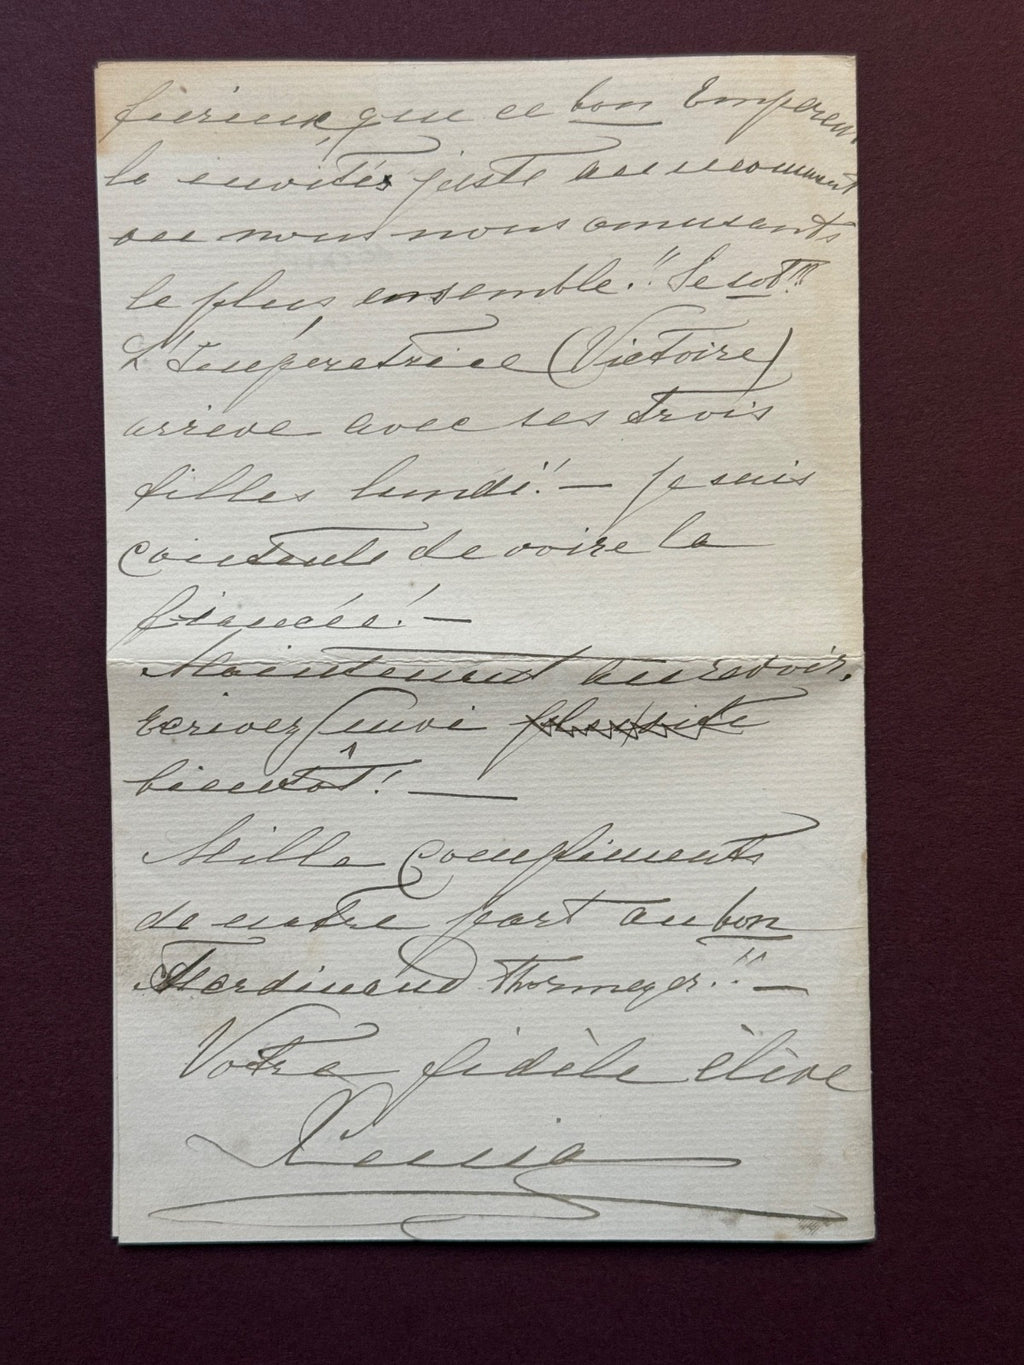 furieux, que ce bon Empereur
le invités juste au moment
ou nous nous amusants
le plus ensemble!! Le sot!!!
L'Impératrice (Victoire)
arrive avec ses trois
filles lundi! — je suis
contente de voire la
fiancée! —
Maintenant au revoir,
écrivez moi
bientôt! —
Mille compliments
de notre part au bon
Ferdinand Thormeyer!! —
Votre fidèle élève
Xenia